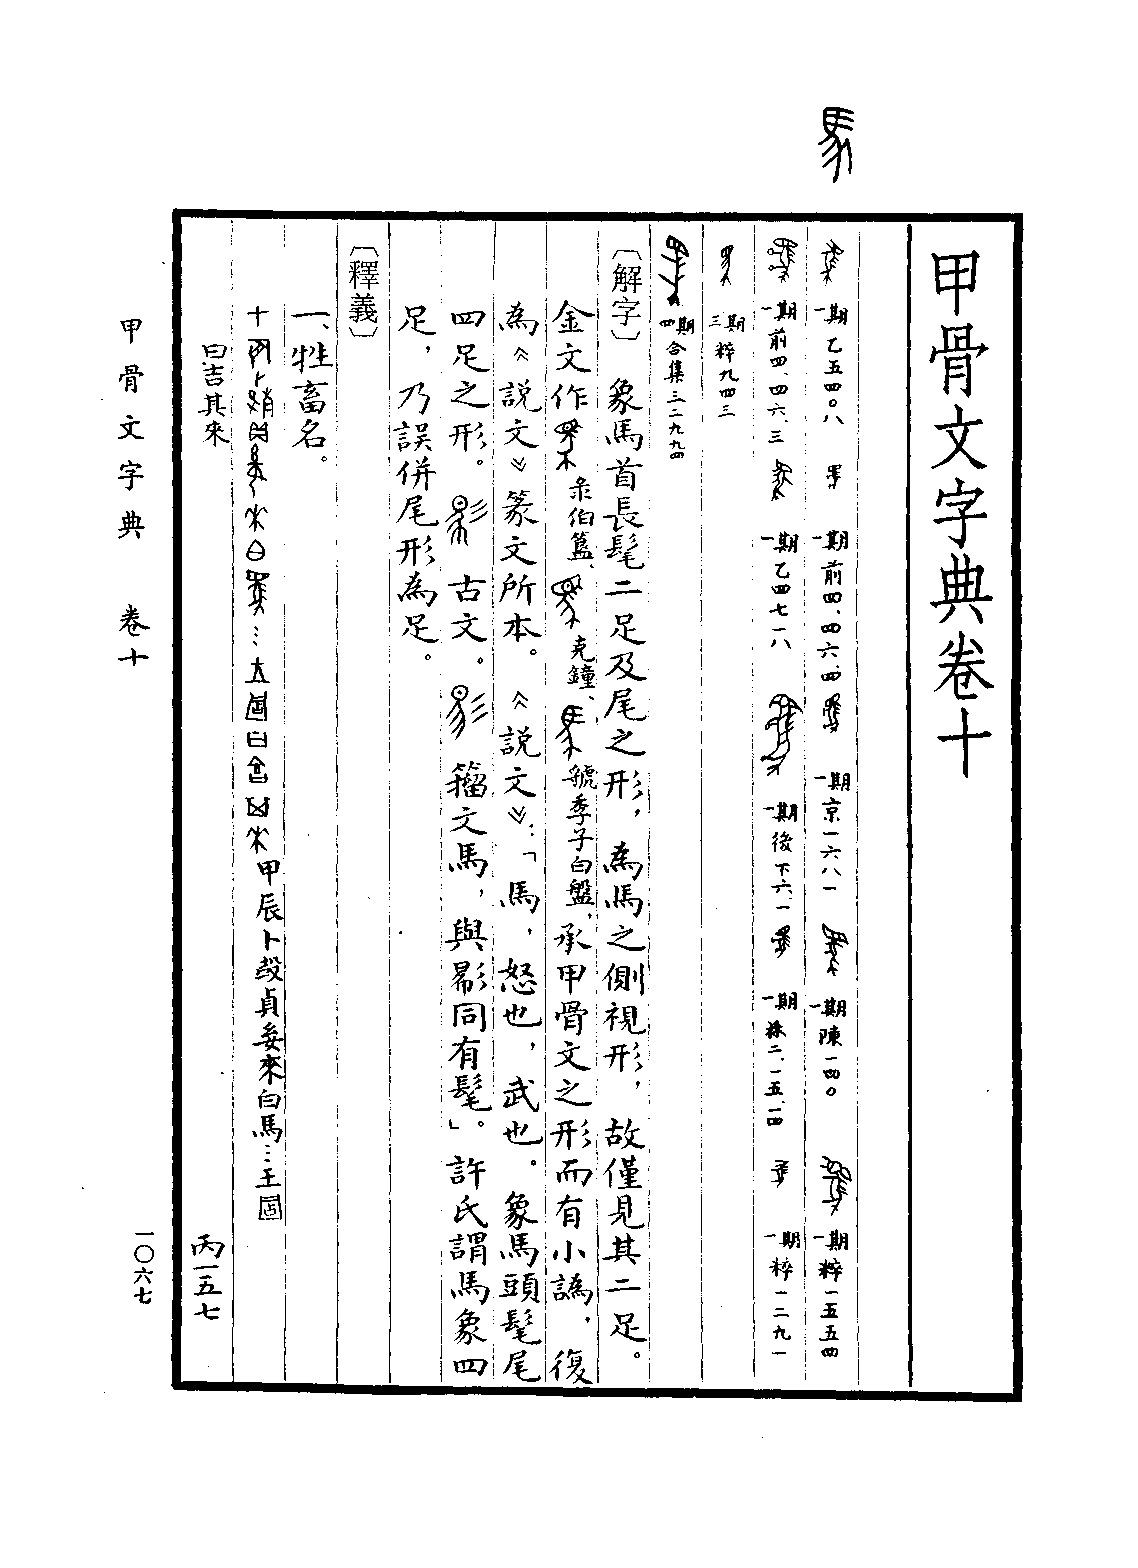 馬
甲骨文字典卷十
一期 乙五四〇八 一期 前四、四六、四 一期 京一六八一 一期 陳一四〇 一期 粹一五五四
一期 前四、四六、三 一期 乙四七一八 一期 後下六、一 一期 一期 粹一二九一
三期 粹九四三
四期 合集三二九九四
〔解字〕 象馬首長髦二足及尾之形，為馬之側視形，故僅見其二足。
金文作 彔伯簋、 克鐘、 虢季子白盤，承甲骨文之形而有小譌，復
為《說文》篆文所本。《說文》：「馬，怒也，武也。象馬頭髦尾
四足之形。 古文。 籀文馬，與影同有髦」。許氏謂馬象四
足，乃誤併尾形為足。
〔釋義〕
一、牲畜名。
甲辰卜㱿貞妾來白馬…王固
曰吉其來 丙一五七
甲骨文字典 卷十
一〇六七